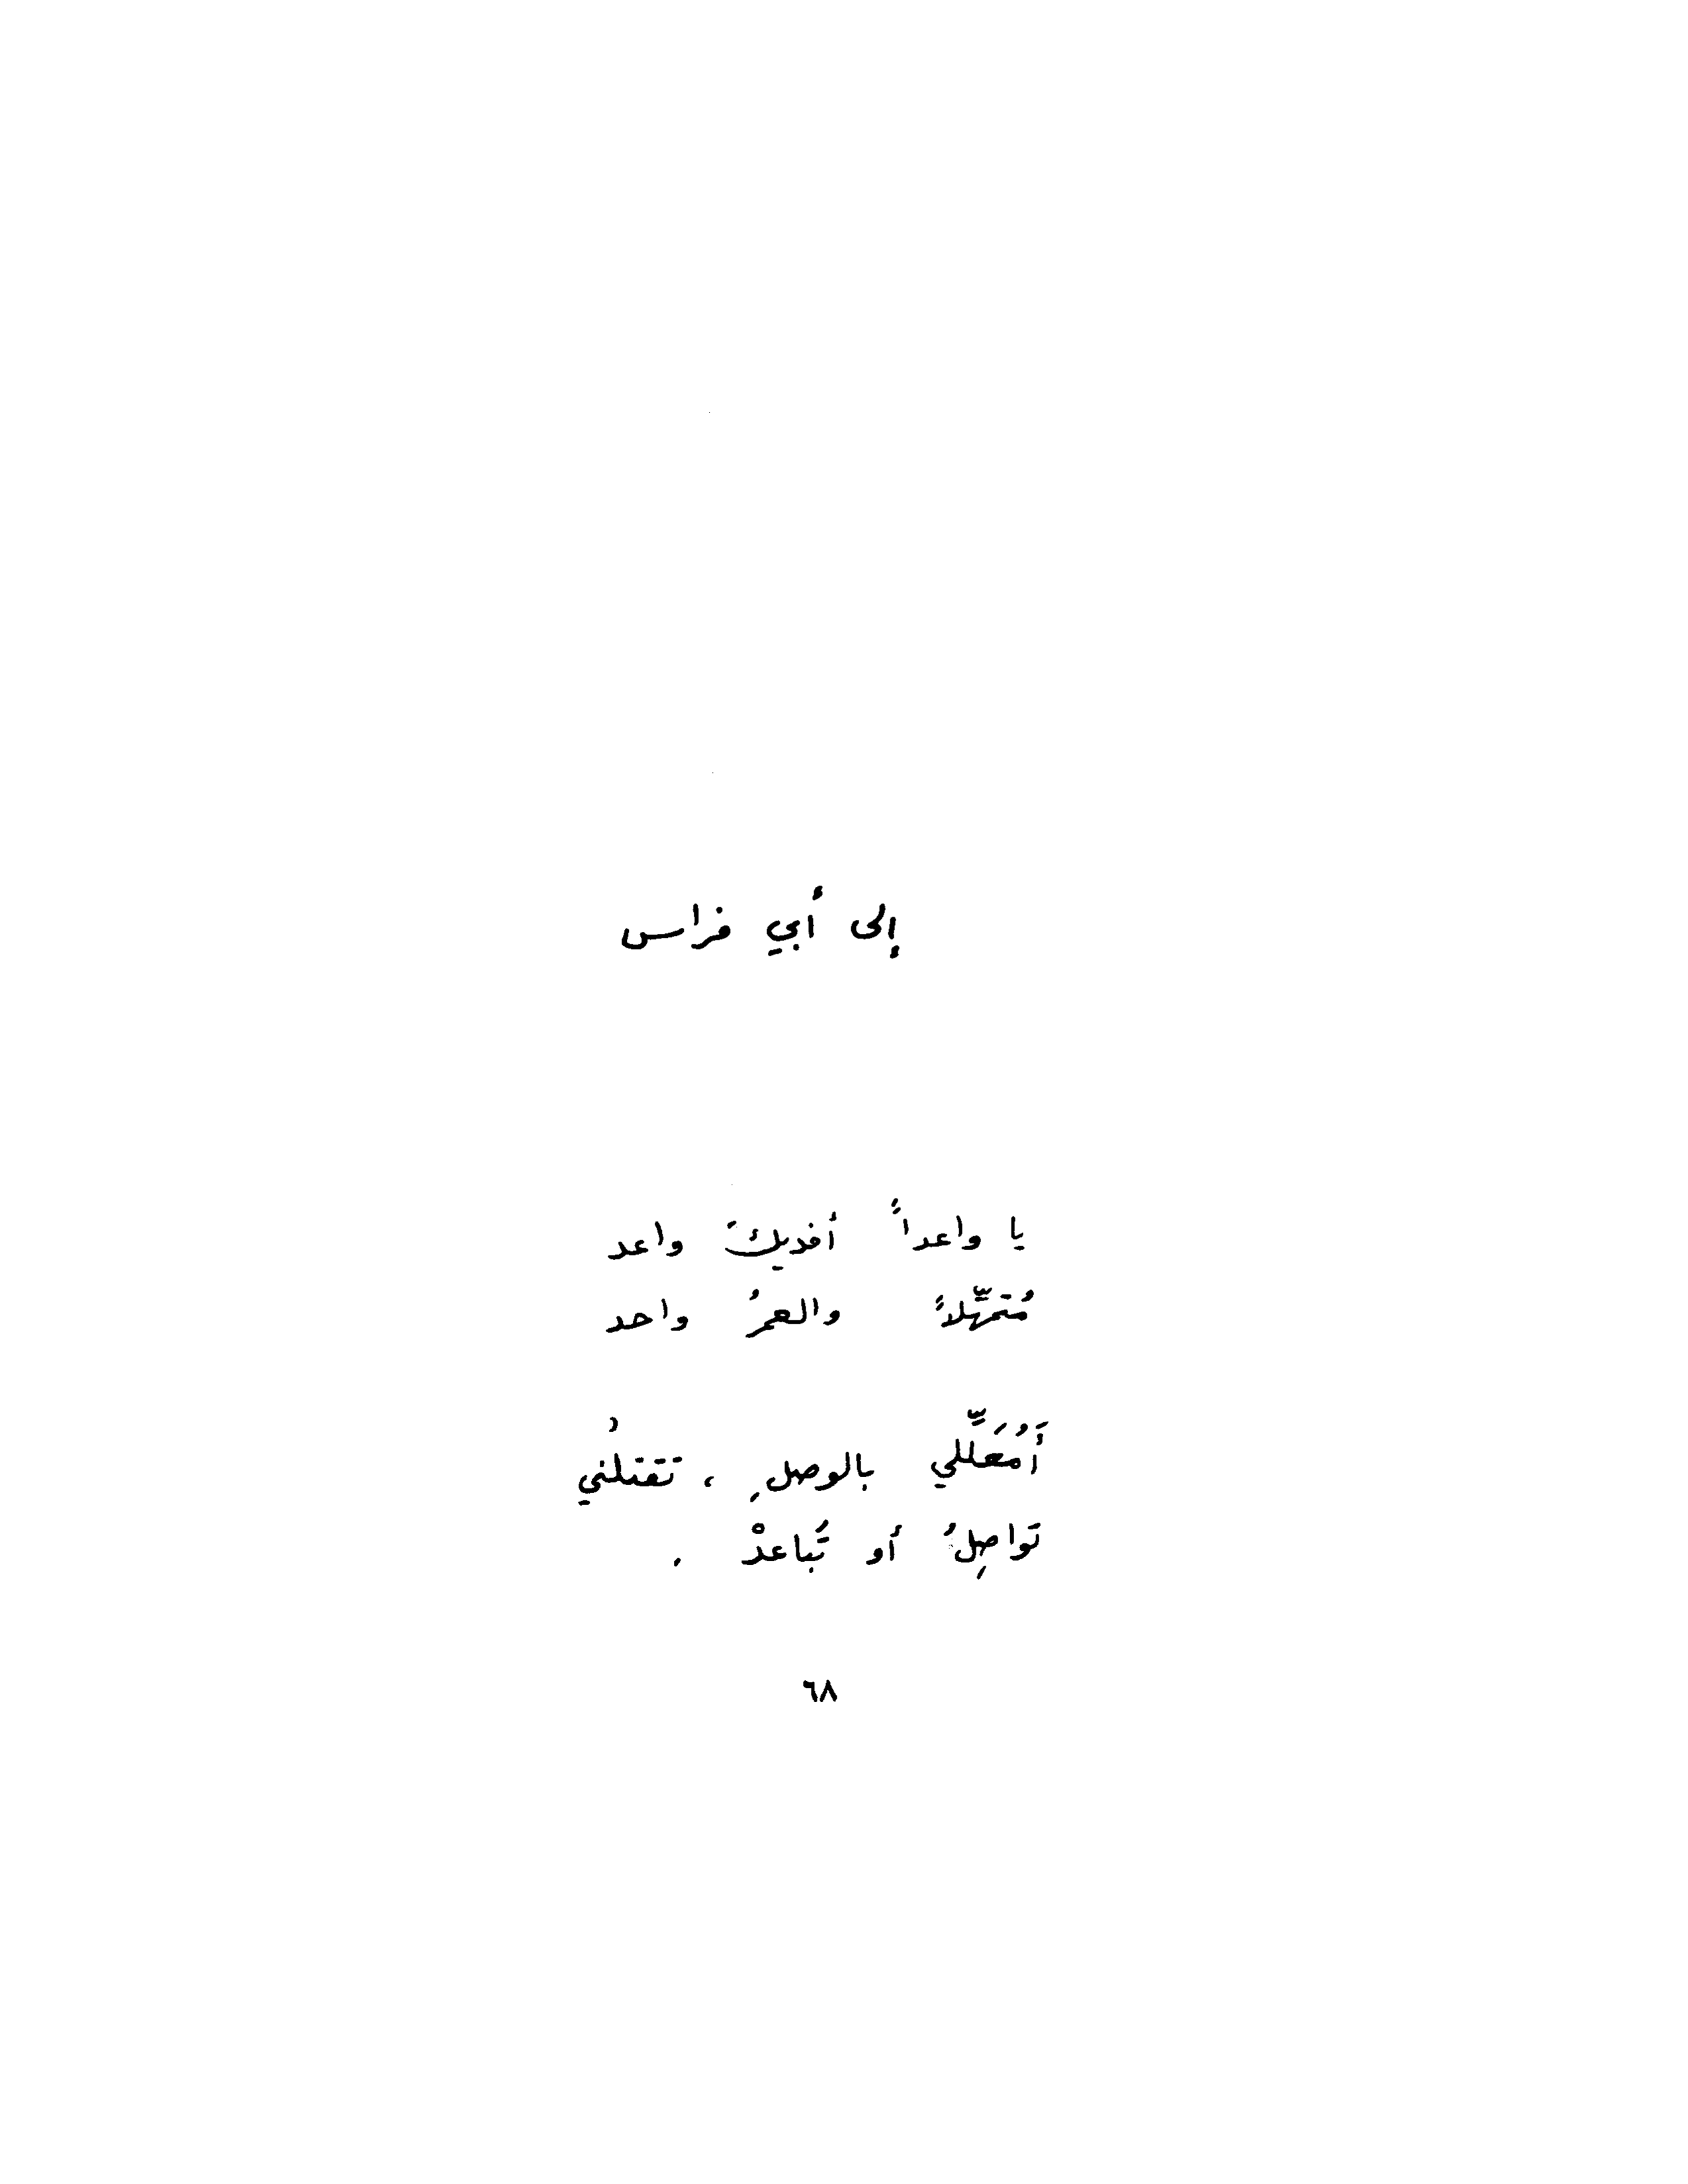 إلى أبي فراس
يا واعداً أفديكَ واعد
مُتمهّلاً والعمرُ واحد
أَمُعَلَّلي بالوصلِ ، تقتلُني
تواصِلُ أو تُباعدْ .
٦٨